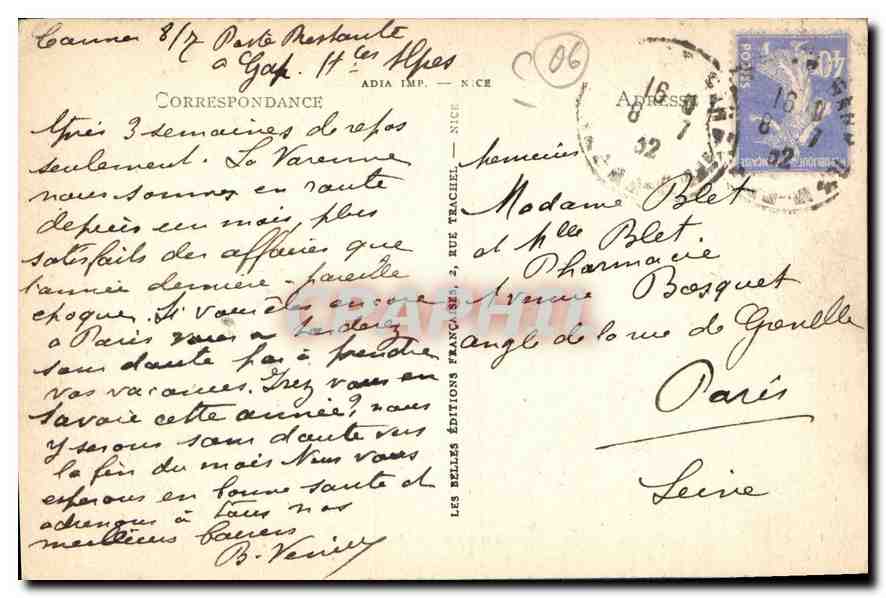 Cannes 8/7 Poste Restante
a Gap. Htes Alpes
ADIA IMP. — NICE
06
CORRESPONDANCE
ADRESSE
Après 3 semaines de repos
seulement. La Varenne
nous sommes en route
depuis un mois, plus
satisfaits des affaires que
l'année dernière pareille
époque. Si vous êtes encore
à Paris vous ne tarderez
sans doute pas à prendre
vos vacances. Irez vous en
Savoie cette année? nous
y serons sans doute vers
la fin du mois Nous vous
espérons en bonne santé et
adressons à tous nos
meilleurs baisers
B.
LES BELLES ÉDITIONS FRANÇAISES, 2, RUE TRACHEL — NICE
Madame Blet
et Mlle Blet
Pharmacie
Avenue Bosquet
angle de la rue de Grenelle
Paris
Seine
POSTES
40
RÉPUBLIQUE FRANÇAISE
16
8 7
32
16
8 7
32
CPAPHIL